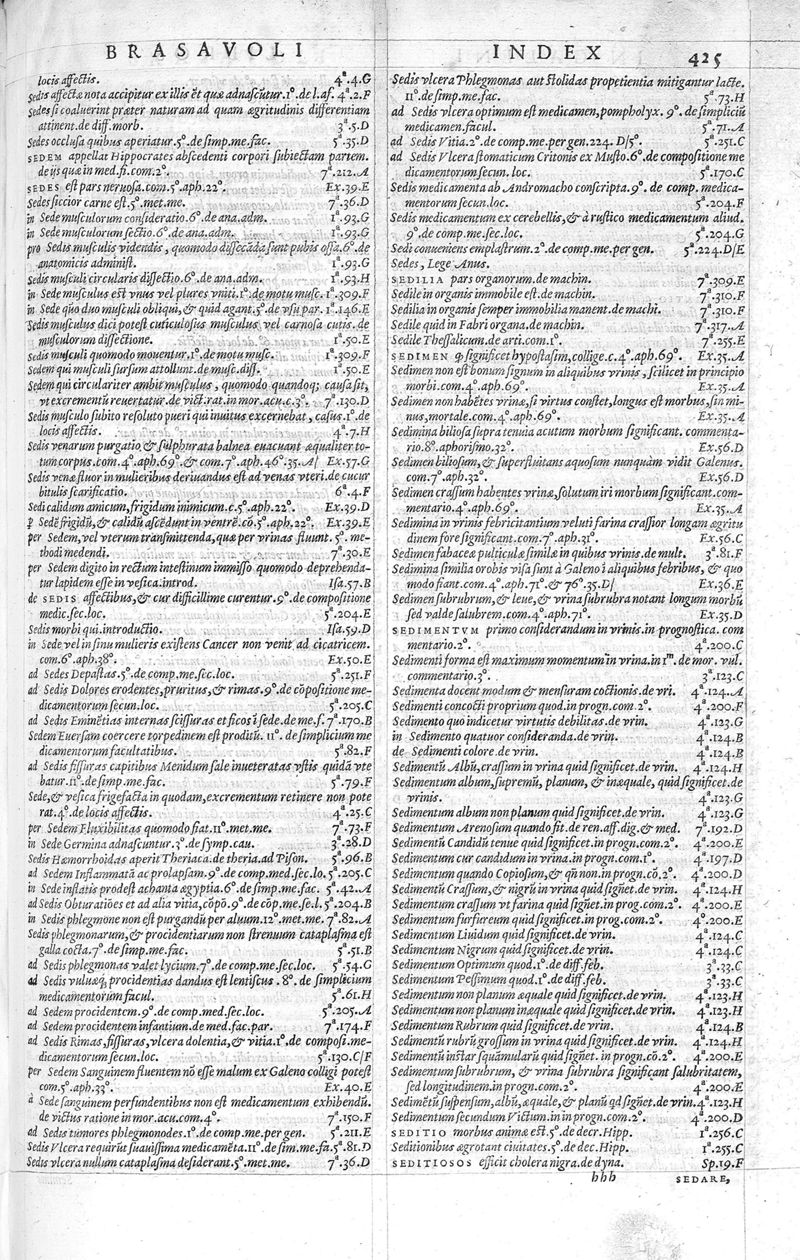 BRASAVOLI INDEX 425
locis affectis. 4ª.4.G
Sedis affectæ nota accipitur ex illis et quæ adnascūtur.1º.de l.af. 4ª.2.F
Sedes si coaluerint præter naturam ad quam ægritudinis differentiam
attinent.de diff.morb. 3ª.5.D
Sedes occlusa quibus aperiatur.5º.de simp.me.fac. 5ª.35.D
SEDEM appellat Hippocrates abscedenti corpori subiectam partem.
de ijs quæ in med.fi.com.2º. 7ª.212.A
SEDES est pars neruosa.com.5º.aph.22º. Ex.39.E
Sedes siccior carne est.5º.met.me. 7ª.36.D
in Sede musculorum consideratio.6º.de ana.adm. 1ª.93.G
in Sede musculorum sectio.6º.de ana.adm. 1ª.93.G
pro Sedis musculis videndis, quomodo dissecāda sunt pubis ossa.6º.de
anatomicis administ. 1ª.93.G
Sedis musculi circularis dissectio.6º.de ana.adm. 1ª.93.H
in Sede musculus est vnus vel plures vniti.1º.de motu musc. 1ª.309.F
in Sede quo duo musculi obliqui,& quid agant.5º.de vsu par. 1ª.146.E
Sedis musculus dici potest cuticulosus musculus vel carnosa cutis.de
musculorum dissectione. 1ª.50.E
Sedis musculi quomodo mouentur.1º.de motu musc. 1ª.309.F
Sedem qui musculi sursum attollunt.de musc.diss. 1ª.50.E
Sedem qui circulariter ambit musculus, quomodo quandoq; causa sit,
vt excrementū reuertatur.de vict.rat.in mor.acu.c.3º. 7ª.130.D
Sedis musculo subito resoluto pueri qui inuitus excernebat, casus.1º.de
locis affectis. 4ª.7.H
Sedis venarum purgatio,& sulphurata balnea euacuant æqualiter to-
tum corpus.com.4º.aph.69º.& com.7º.aph.46º.35.A/ Ex.57.G
Sedis venæ fluor in mulieribus deriuandus est ad venas vteri.de cucur
bitulis scarificatio. 6ª.4.F
Sedi calidum amicum,frigidum inimicum.c.5º.aph.22º. Ex.39.D
ꝑ Sedē frigidū,& calidū ascēdunt in ventrē.cō.5º.aph.22º. Ex.39.E
per Sedem,vel vterum transmittenda,quæ per vrinas fluunt. 5º. me-
thodi medendi. 7ª.30.E
per Sedem digito in rectum intestinum immisso quomodo deprehenda-
tur lapidem esse in vesica.introd. Isa.57.B
de SEDIS affectibus,& cur difficillime curentur.9º.de compositione
medic.sec.loc. 5ª.204.E
Sedis morbi qui.introductio. Isa.59.D
in Sede vel in sinu mulieris existens Cancer non venit ad cicatricem.
com.6º.aph.38º. Ex.50.E
ad Sedes Depastas.5º.de comp.me.sec.loc. 5ª.251.F
ad Sedis Dolores erodentes,pruritus,& rimas.9º.de cōpositione me-
dicamentorum secun.loc. 5ª.205.C
ad Sedis Eminētias internas scissuras et ficos ī sede.de me.f. 7ª.170.B
Sedem Euersam coercere torpedinem est proditū. 11º. de simplicium me
dicamentorum facultatibus. 5ª.82.F
ad Sedis fissuras capitibus Menidum sale inueteratas vstis quidā vte
batur.11º.de simp.me.fac. 5ª.79.F
Sede,& vesica frigefacta in quodam,excrementum retinere non pote
rat.4º.de locis affectis. 4ª.25.C
per Sedem Fluxibilitas quomodo fiat.11º.met.me. 7ª.73.F
in Sede Germina adnascuntur.3º.de symp.cau. 3ª.28.D
Sedis Hæmorrhoidas aperit Theriaca.de theria.ad Pison. 5ª.96.B
ad Sedem Inflammatā ac prolapsam.9º.de comp.med.sec.lo. 5ª.205.C
in Sede inflatis prodest achanta ægyptia.6º.de simp.me.fac. 5ª.42.A
ad Sedis Obturatiōes et ad alia vitia,cōpō.9º.de cōp.me.se.l. 5ª.204.B
in Sedis phlegmone non est purgandū per aluum.12º.met.me. 7ª.82.A
Sedis phlegmonarum,& procidentiarum non strenuum cataplasma est
galla cocta.7º.de simp.me.fac. 5ª.51.B
ad Sedis phlegmonas valet lycium.7º.de comp.me.sec.loc. 5ª.54.G
ad Sedis vuluæq; procidentias dandus est lentiscus. 8º.de simplicium
medicamentorum facul. 5ª.61.H
ad Sedem procidentem.9º.de comp.med.sec.loc. 5ª.205.A
ad Sedem procidentem infantium.de med.fac.par. 7ª.174.F
ad Sedis Rimas,fissuras,vlcera dolentia,& vitia.1º.de composi.me-
dicamentorum secun.loc. 5ª.130.C/F
per Sedem Sanguinem fluentem nō esse malum ex Galeno colligi potest
com.5º.aph.33º. Ex.40.E
à Sede sanguinem perfundentibus non est medicamentum exhibendū.
de victus ratione in mor.acu.com.4º. 7ª.150.F
ad Sedis tumores phlegmonodes.1º.de comp.me.per gen. 5ª.211.E
Sedis Vlcera requirūt suauissima medicamēta.11º.de sim.me.fa. 5ª.81.D
Sedis vlcera nullum cataplasma desiderant.5º.met.me. 7ª.36.D
Sedis vlcera Phlegmonas aut stolidas propetientia mitigantur lacte.
11º.de simp.me.fac. 5ª.73.H
ad Sedis vlcera optimum est medicamen,pompholyx. 9º.de simpliciū
medicamen.facul. 5ª.71.A
ad Sedis Vitia.2º.de comp.me.per gen.224. D/5º. 5ª.251.C
ad Sedis Vlcera stomaticum Critonis ex Musto.6º.de compositione me
dicamentorum secun.loc. 5ª.170.C
Sedis medicamenta ab Andromacho conscripta.9º. de comp. medica-
mentorum secun.loc. 5ª.204.F
Sedis medicamentum ex cerebellis,& à rustico medicamentum aliud.
9º.de comp.me.sec.loc. 5ª.204.G
Sedi conueniens emplastrum.2º.de comp.me.per gen. 5ª.224.D/E
Sedes, Lege Anus.
SEDILIA pars organorum.de machin. 7ª.309.E
Sedile in organis immobile est.de machin. 7ª.310.F
Sedilia in organis semper immobilia manent.de machi. 7ª.310.F
Sedile quid in Fabri organa.de machin. 7ª.317.A
Sedile Thessalicum.de arti.com.1º. 7ª.255.E
SEDIMEN ꝙ significet hypostasim,collige.c.4º.aph.69º. Ex.35.A
Sedimen non est bonum signum in aliquibus vrinis, scilicet in principio
morbi.com.4º.aph.69º. Ex.35.A
Sedimen non habētes vrinæ,si virtus constet,longus est morbus,sin mi-
nus,mortale.com.4º.aph.69º. Ex.35.A
Sedimina biliosa supra tenuia acutum morbum significant. commenta-
rio.8º.aphorismo.32º. Ex.56.D
Sedimen biliosum,& superfluitans aquosum nunquam vidit Galenus.
com.7º.aph.32º. Ex.56.D
Sedimen crassum habentes vrinæ,solutum iri morbum significant.com-
mentario.4º.aph.69º. Ex.35.A
Sedimina in vrinis febricitantium veluti farina crassior longam ægritu
dinem fore significant.com.7º.aph.31º. Ex.56.C
Sedimen fabaceæ pulticulæ similæ in quibus vrinis.de mult. 3ª.81.F
Sedimina similia orobis visa sunt à Galeno ī aliquibus febribus, & quo
modo fiant.com.4º.aph.71º.& 76º.35.D/ Ex.36.E
Sedimen subrubrum, & leue,& vrina subrubra notant longum morbū
sed valde salubrem.com.4º.aph.71º. Ex.35.D
SEDIMENTVM primo considerandum in vrinis.in prognostica. com
mentario.2º. 4ª.200.C
Sedimenti forma est maximum momentum in vrina.in 1ᵐ.de mor. vul.
commentario.3º. 3ª.123.C
Sedimenta docent modum & mensuram coctionis.de vri. 4ª.124.A
Sedimenti concocti proprium quod.in progn.com.2º. 4ª.200.F
Sedimento quo indicetur virtutis debilitas.de vrin. 4ª.123.G
in Sedimento quatuor consideranda.de vrin. 4ª.124.B
de Sedimenti colore.de vrin. 4ª.124.B
Sedimentū Albū,crassum in vrina quid significet.de vrin. 4ª.124.H
Sedimentum album,supremū, planum, & inæquale, quid significet.de
vrinis. 4ª.123.G
Sedimentum album non planum quid significet.de vrin. 4ª.123.G
Sedimentum Arenosum quando fit.de ren.aff.dig.& med. 7ª.192.D
Sedimentū Candidū tenue quid significet.in progn.com.2º. 4ª.200.E
Sedimentum cur candidum in vrina.in progn.com.1º. 4ª.197.D
Sedimentum quando Copiosum,& qñ non.in progn.cō.2º. 4ª.200.D
Sedimentū Crassum,& nigrū in vrina quid signet.de vrin. 4ª.124.H
Sedimentum crassum vt farina quid signet.in prog.com.2º. 4ª.200.E
Sedimentum furfureum quid significet.in prog.com.2º. 4ª.200.E
Sedimentum Liuidum quid significet.de vrin. 4ª.124.C
Sedimentum Nigrum quid significet.de vrin. 4ª.124.C
Sedimentum Optimum quod.1º.de diff.feb. 3ª.33.C
Sedimentum Pessimum quod.1º.de diff.feb. 3ª.33.C
Sedimentum non planum æquale quid significet.de vrin. 4ª.123.H
Sedimentum non planum inæquale quid significet.de vrin. 4ª.123.H
Sedimentum Rubrum quid significet.de vrin. 4ª.124.B
Sedimentū rubrū grossum in vrina quid significet.de vrin. 4ª.124.H
Sedimentū instar squāmularū quid signet. in progn.cō.2º. 4ª.200.E
Sedimentum subrubrum, & vrina subrubra significant salubritatem,
sed longitudinem.in progn.com.2º. 4ª.200.E
Sedimētū suspensum,albū,æquale,& planū qd signet.de vrin. 4ª.123.H
Sedimentum secundum Victum.in in progn.com.2º. 4ª.200.D
SEDITIO morbus animæ est.5º.de decr.Hipp. 1ª.256.C
Seditionibus ægrotant ciuitates.5º.de dec.Hipp. 1ª.255.C
SEDITIOSOS efficit cholera nigra.de dyna. Sp.19.F
hhh SEDARE,